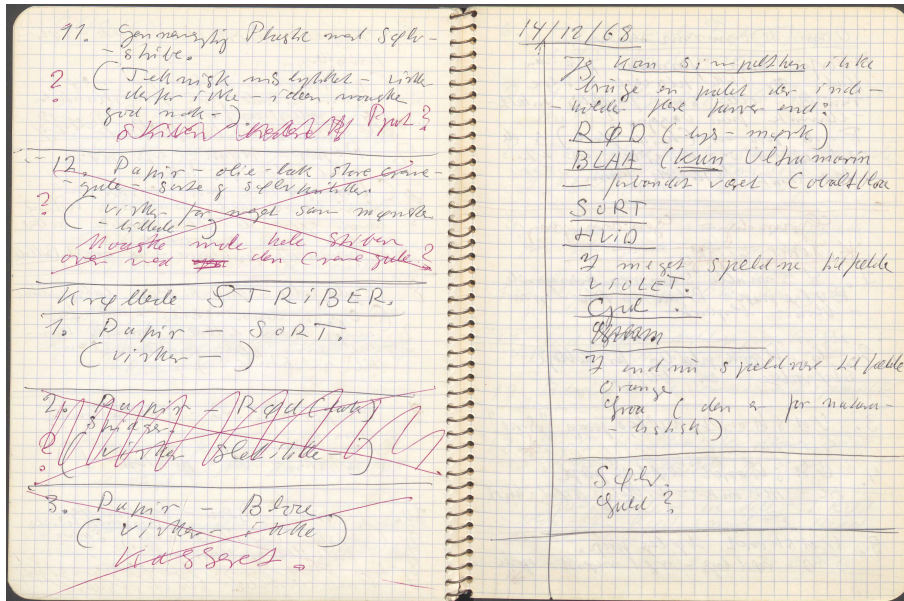 91. Gennemsigtig Plastic med Sølv-
-stribe.
? (Teknisk mislykket - virker
derfor ikke - ideen måske
god nok -).
skiven
12. Papir - olie-lak store Crome-
-gule - sorte og sølv
? (virker for meget som
-billede -)
Maaske male hele skiven
over med den Crome gule?
Krøllede STRIBER.
1. Papir - SORT.
(virker - )
2. Papir - Rød (lak)
? (virker slet ikke )
3. Papir - Blaa.
(virker - ikke )
Kasseret.
14/12/68
Jeg kan simpelthen ikke
bruge en palet der inde-
-holder flere farver end:
RØD (lys - mørk)
BLAA (kun Ultramarin
- forbandet været Coboltblaa
SORT
HVID
I meget sjældne tilfælde
VIOLET.
Gul.
I endnu sjældnere tilfælde
Orange
Grøn (den er for natura-
-listisk)
Sølv.
Guld?